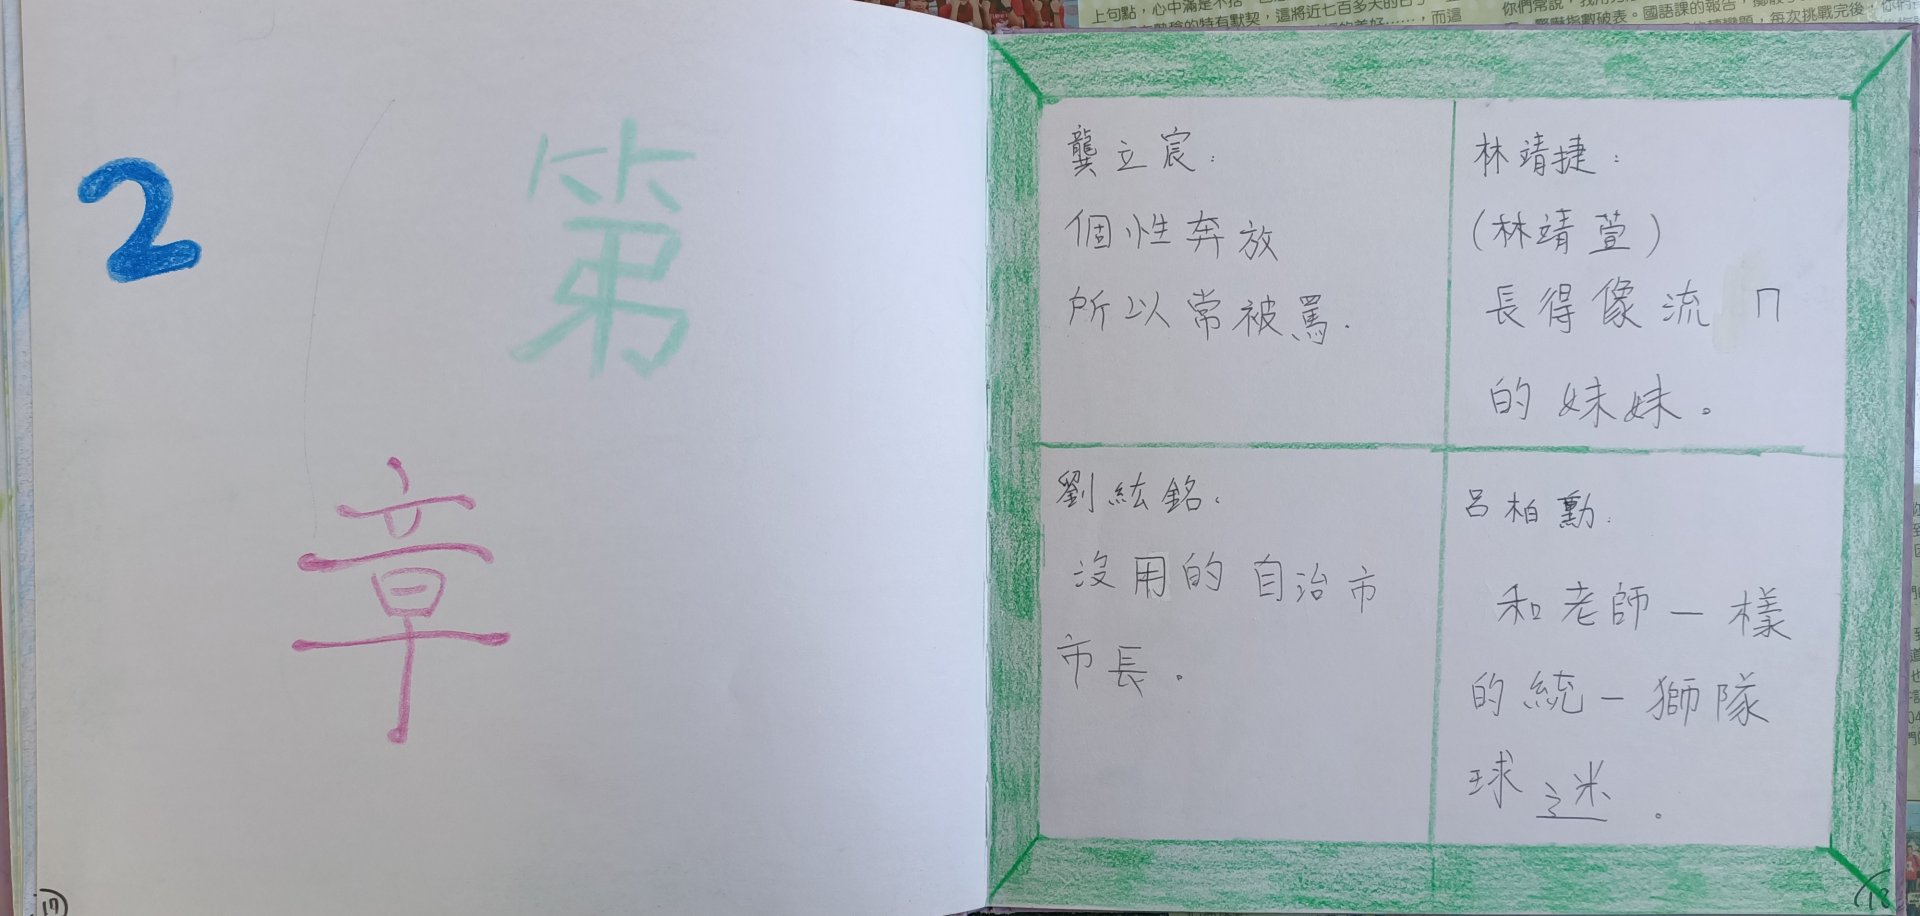 第
2
章
17
龔立宸：
個性奔放
所以常被罵.
林靖捷：
(林靖萱)
長得像流ㄇ
的妹妹。
劉紘銘：
沒用的自治市
市長。
呂柏勳：
和老師一樣
的統一獅隊
球迷。
18
上句點，心中滿是不捨
的特有默契，這將近七百多天的日子
的美好……，而這
你們常說，我
驚嚇指數破表。國語課的報告
每次挑戰完後，你們